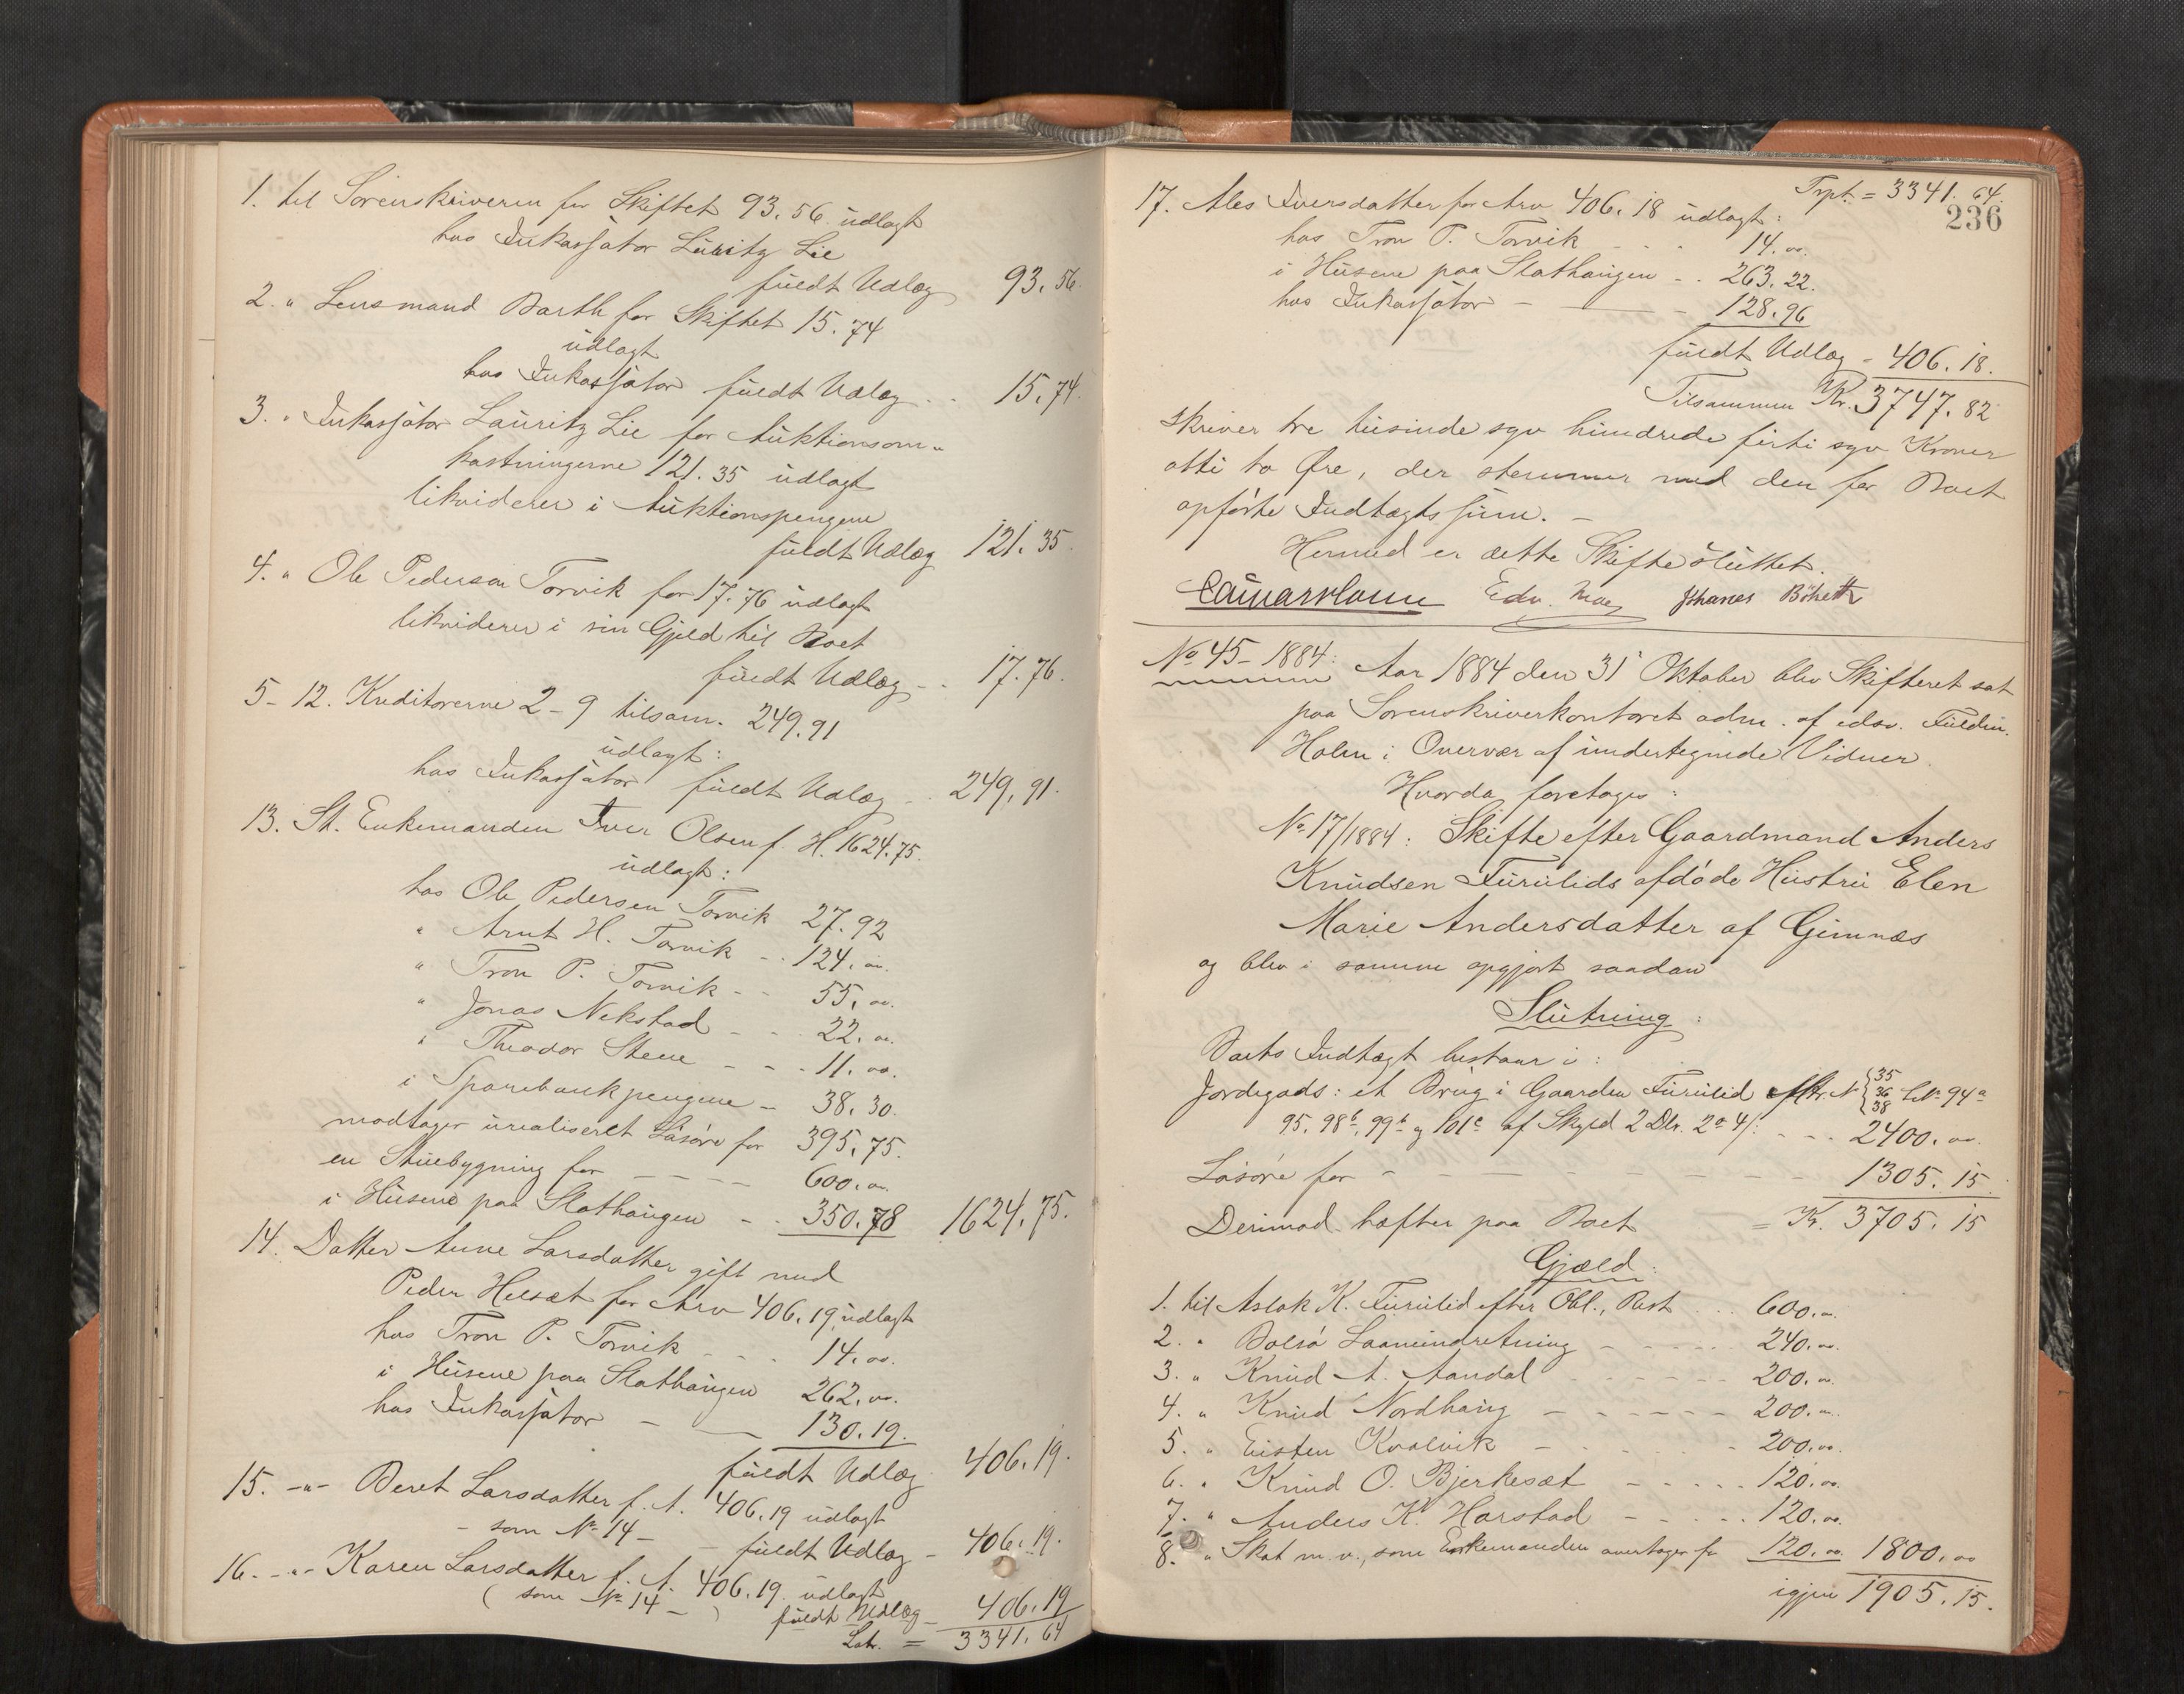 1. til Sorenskriveren for Skiftet 93.56 udlagt
hos Inkassator Lauritz Lie
fuldt Udlæg 93.56.
2. " Lensmand Barth for Skiftet 15.74
udlagt
hos Inkassator fuldt Udlæg 15.74.
3. " Inkassator Lauritz Lie for Auktionsom-
kostningerne 121.35 udlagt
likviderer i Auktionspengene
fuldt Udlæg 121.35.
4. " Ole Pedersen Torvik for 17.76 udlagt
likviderer i sin Gjæld til Boet
fuldt Udlæg 17.76.
5-12. Kreditorerne 2-9 tilsam. 249.91
udlagt:
hos Inkassator fuldt Udlæg 249.91.
13. St. Enkemanden Iver Olsen f. H. 1624.75.
udlagt:
hos Ole Pedersen Torvik 27.92
" Arnt H. Torvik 124.00.
" Tron P. Torvik 55.00.
" Jonas Nekstad 22.00.
" Theodor Stene 11.00.
i Sparebankpengene 38.30.
modtager urealiseret Løsøre for 395.75.
en Stuebygning for 600.00.
i Husene paa Slathaugen 350.78 1624.75.
14. Datter Anne Larsdatter gift med
Peder Helsæt for Arv 406.19 udlagt
hos Tron P. Torvik 14.00.
i Husene paa Slathaugen 262.00.
hos Inkassator 130.19.
fuldt Udlæg 406.19.
15. -"- Beret Larsdatter f. A. 406.19 udlagt
- som No 14 - fuldt Udlæg 406.19.
16. -"- Karen Larsdatter f. A. 406.19 udlagt
(som No 14 -) fuldt Udlæg 406.19
Latr. = 3341.64
Trpt. = 3341.64.
236
17. Ales Iversdatter for Arv 406.18 udlagt:
hos Tron P. Torvik 14.00.
i Husene paa Slathaugen 263.22.
hos Inkassator 128.96
fuldt Udlæg 406.18.
Tilsammen Kr. 3747.82
skriver tre tusinde syv hundrede firti syv Kroner
otti to Øre, der stemmer med den for Boet
opførte Indtægtssum. -
Hermed er dette Skifte sluttet.
Edv. Moe Johanes Bøhett
No 45-1884: Aar 1884 den 31 Oktober blev Skifteret sat
paa Sorenskriverkontoret adm. af edsv. Fuldm.
Holm i Overvær af undertegnede Vidner.
Hvorda foretoges:
No 17/1884: Skifte efter Gaardmand Anders
Knudsen Furulids afdøde Hustru Elen
Marie Andersdatter af Gimnæs
og blev i samme opgjort saadan
Slutning:
Boets Indtægt bestaar i:
Jordegods: et Brug i Gaarden Furulid Mtr. N {35 36 38 L No 94a
95. 98b, 99b og 101c af Skyld 2 Dlr. 2 o 4/: 2400.00.
Løsøre for 1305.15.
Derimod hæfter paa Boet = Kr. 3705.15
Gjæld:
1. til Aslak K. Furulid efter Obl., Rest 600.00.
2. " Bolsø Laaneindretning 240.00.
3. " Knud A. Aandal 200.00.
4. " Knud Nordhaug 200.00.
5. " Eisten Kvalvik 200.00.
6. " Knud O. Bjerkesæt 120.00.
7. " Anders K. Harstad 120.00.
8. " Skat m.v., som Enkemanden overtager for 120.00 1800.00
igjen 1905.15.